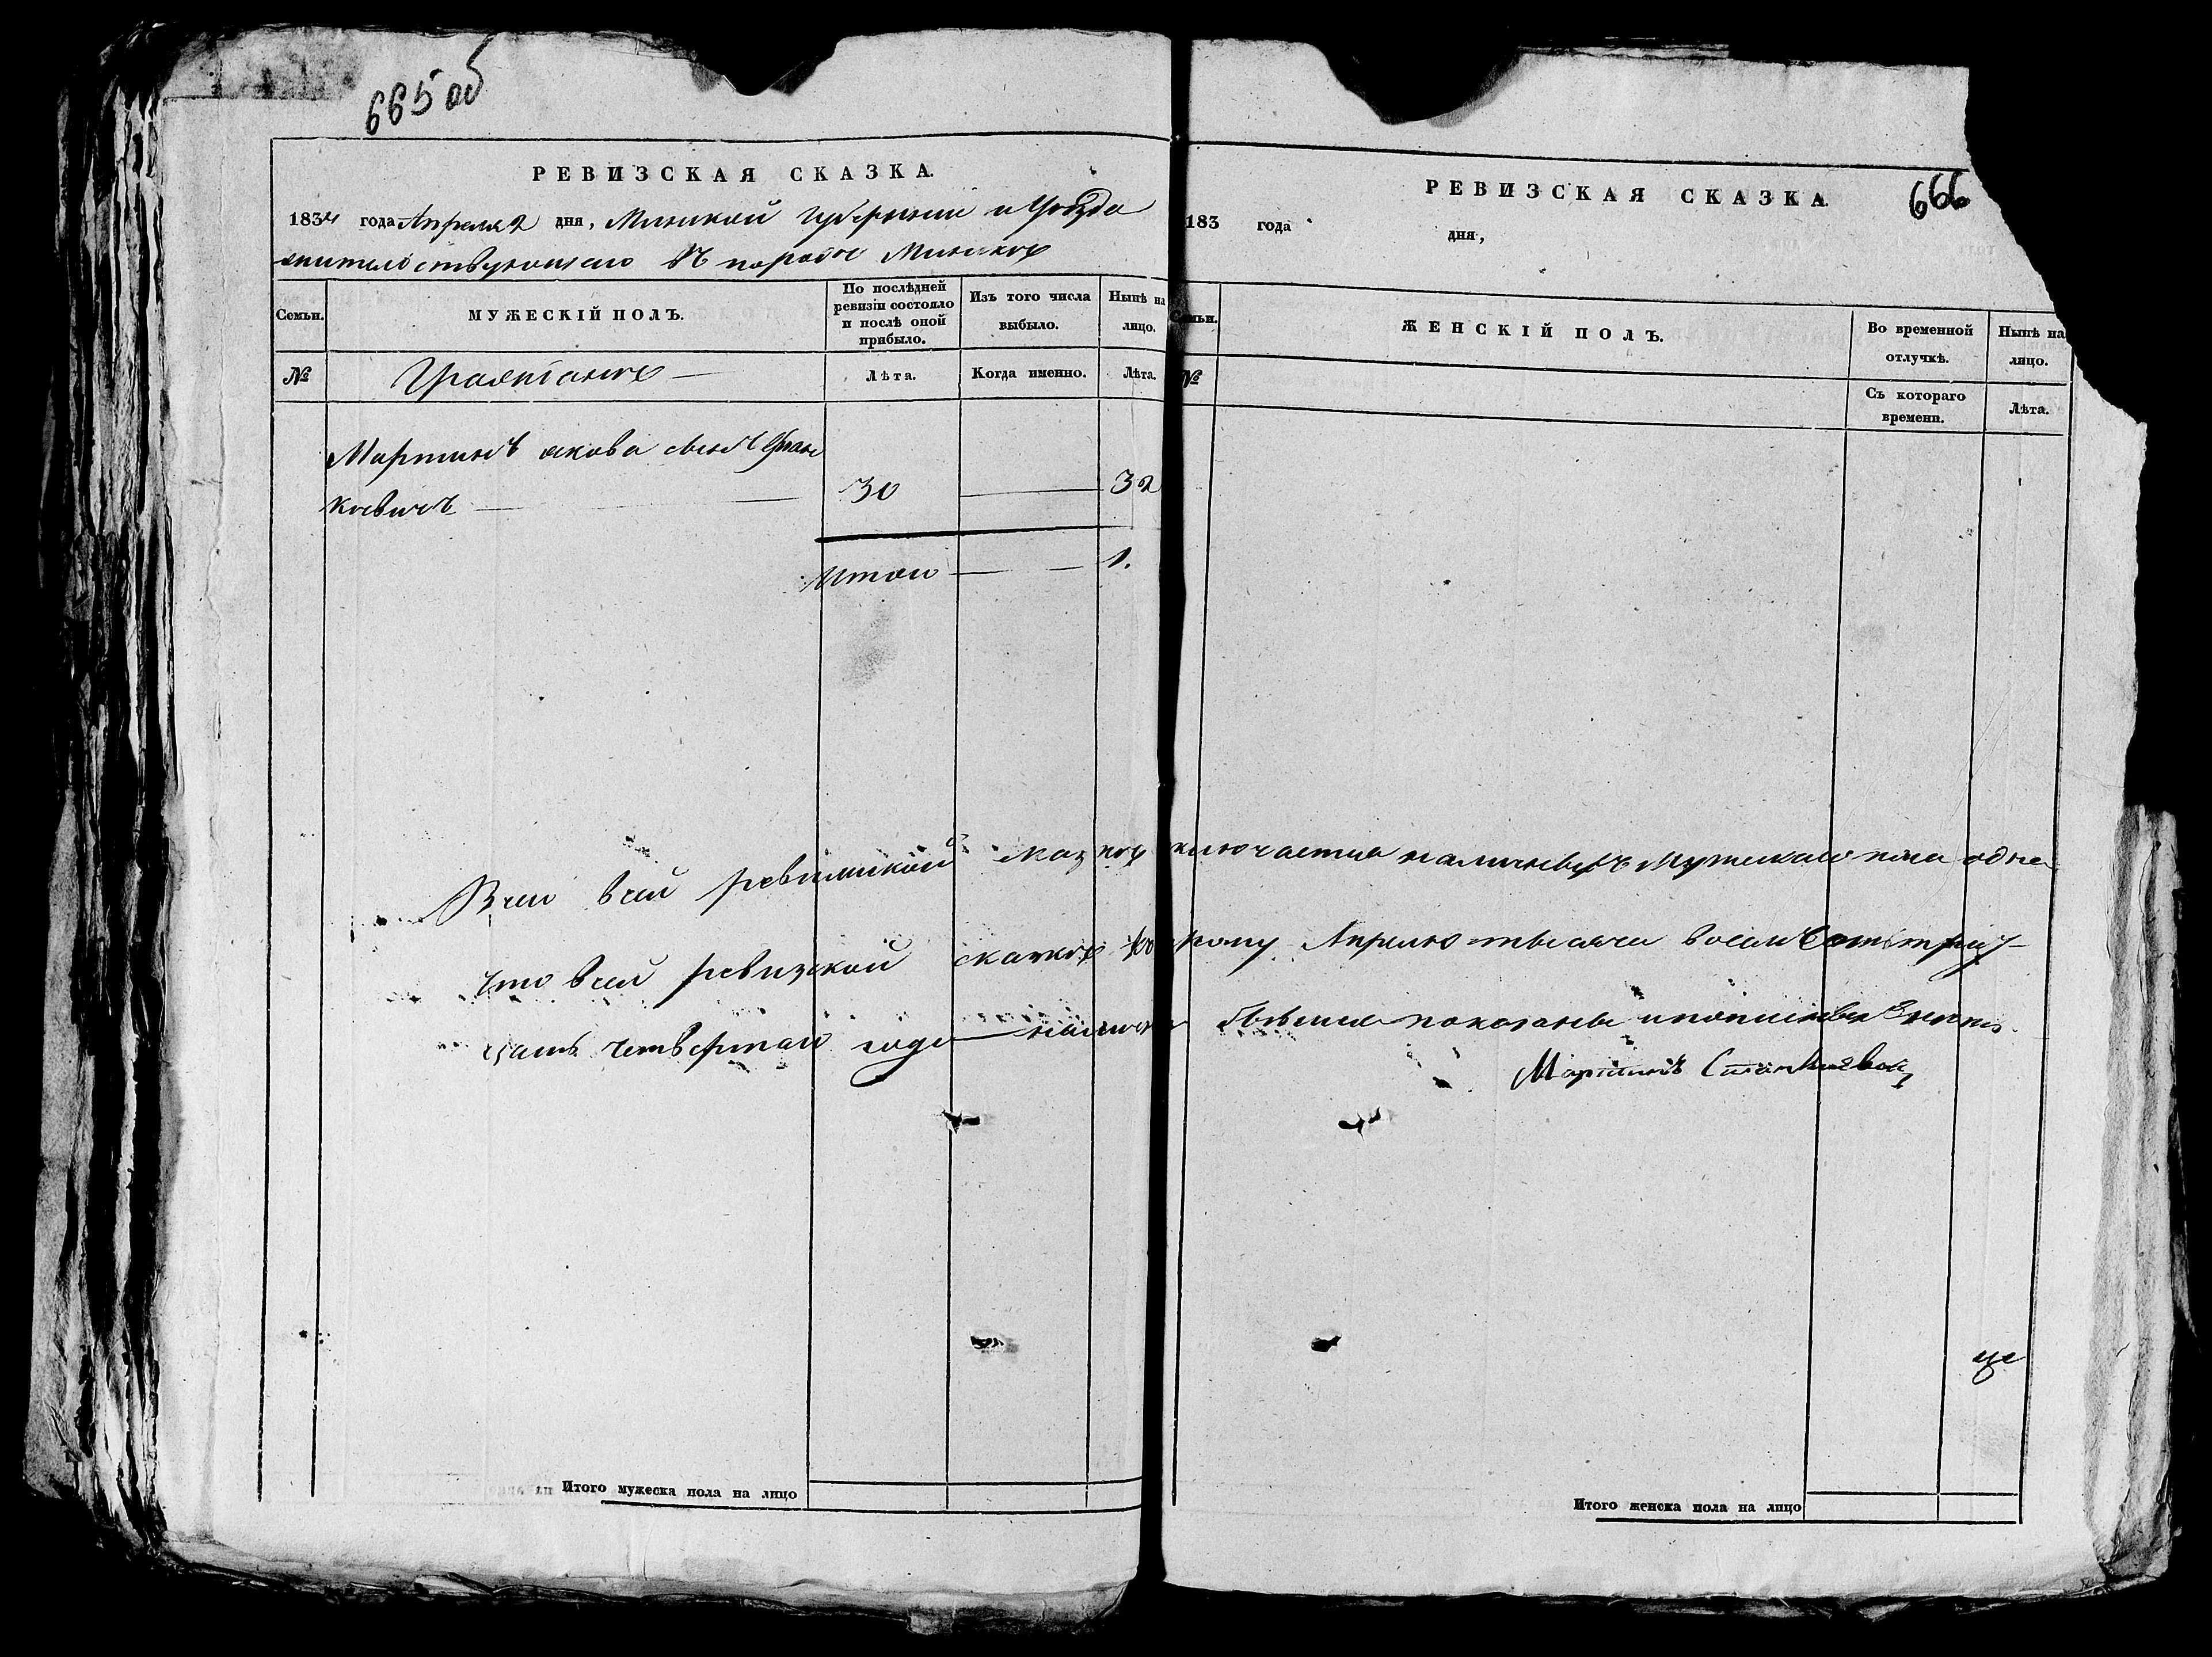 665 об
РЕВИЗСКАЯ СКАЗКА.
1834 года Апреля 2 дня, Минской губернии и Уѣзда
жительствующаго въ городе Минске
Семьи.
МУЖЕСКІЙ ПОЛЪ.
По послѣдней ревизіи состояло и послѣ оной прибыло.
Изъ того числа выбыло.
Нынѣ на лицо.
№
Гражданѣ
Лѣта.
Когда именно.
Лѣта.
Мартинъ якова сынъ Стан
кевичъ 30 32
Итого 1.
Всего в сей ревизской
что в сей ревизской скаске
цать четвертаго года
Итого мужеска пола на лицо
666
РЕВИЗСКАЯ СКАЗКА.
183 года дня,
Семьи.
ЖЕНСКІЙ ПОЛЪ.
Во временной отлучкѣ.
Нынѣ на лицо.
№
Съ котораго времени.
Лѣта.
ключается наличныхъ мужскаго пола одна
Апрелю тысяча восемъ сотъ трид
показаны
Мартинъ Станкевич
Итого женска пола на лицо